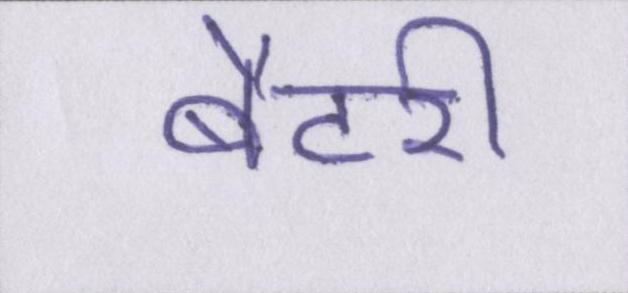 बैटरी